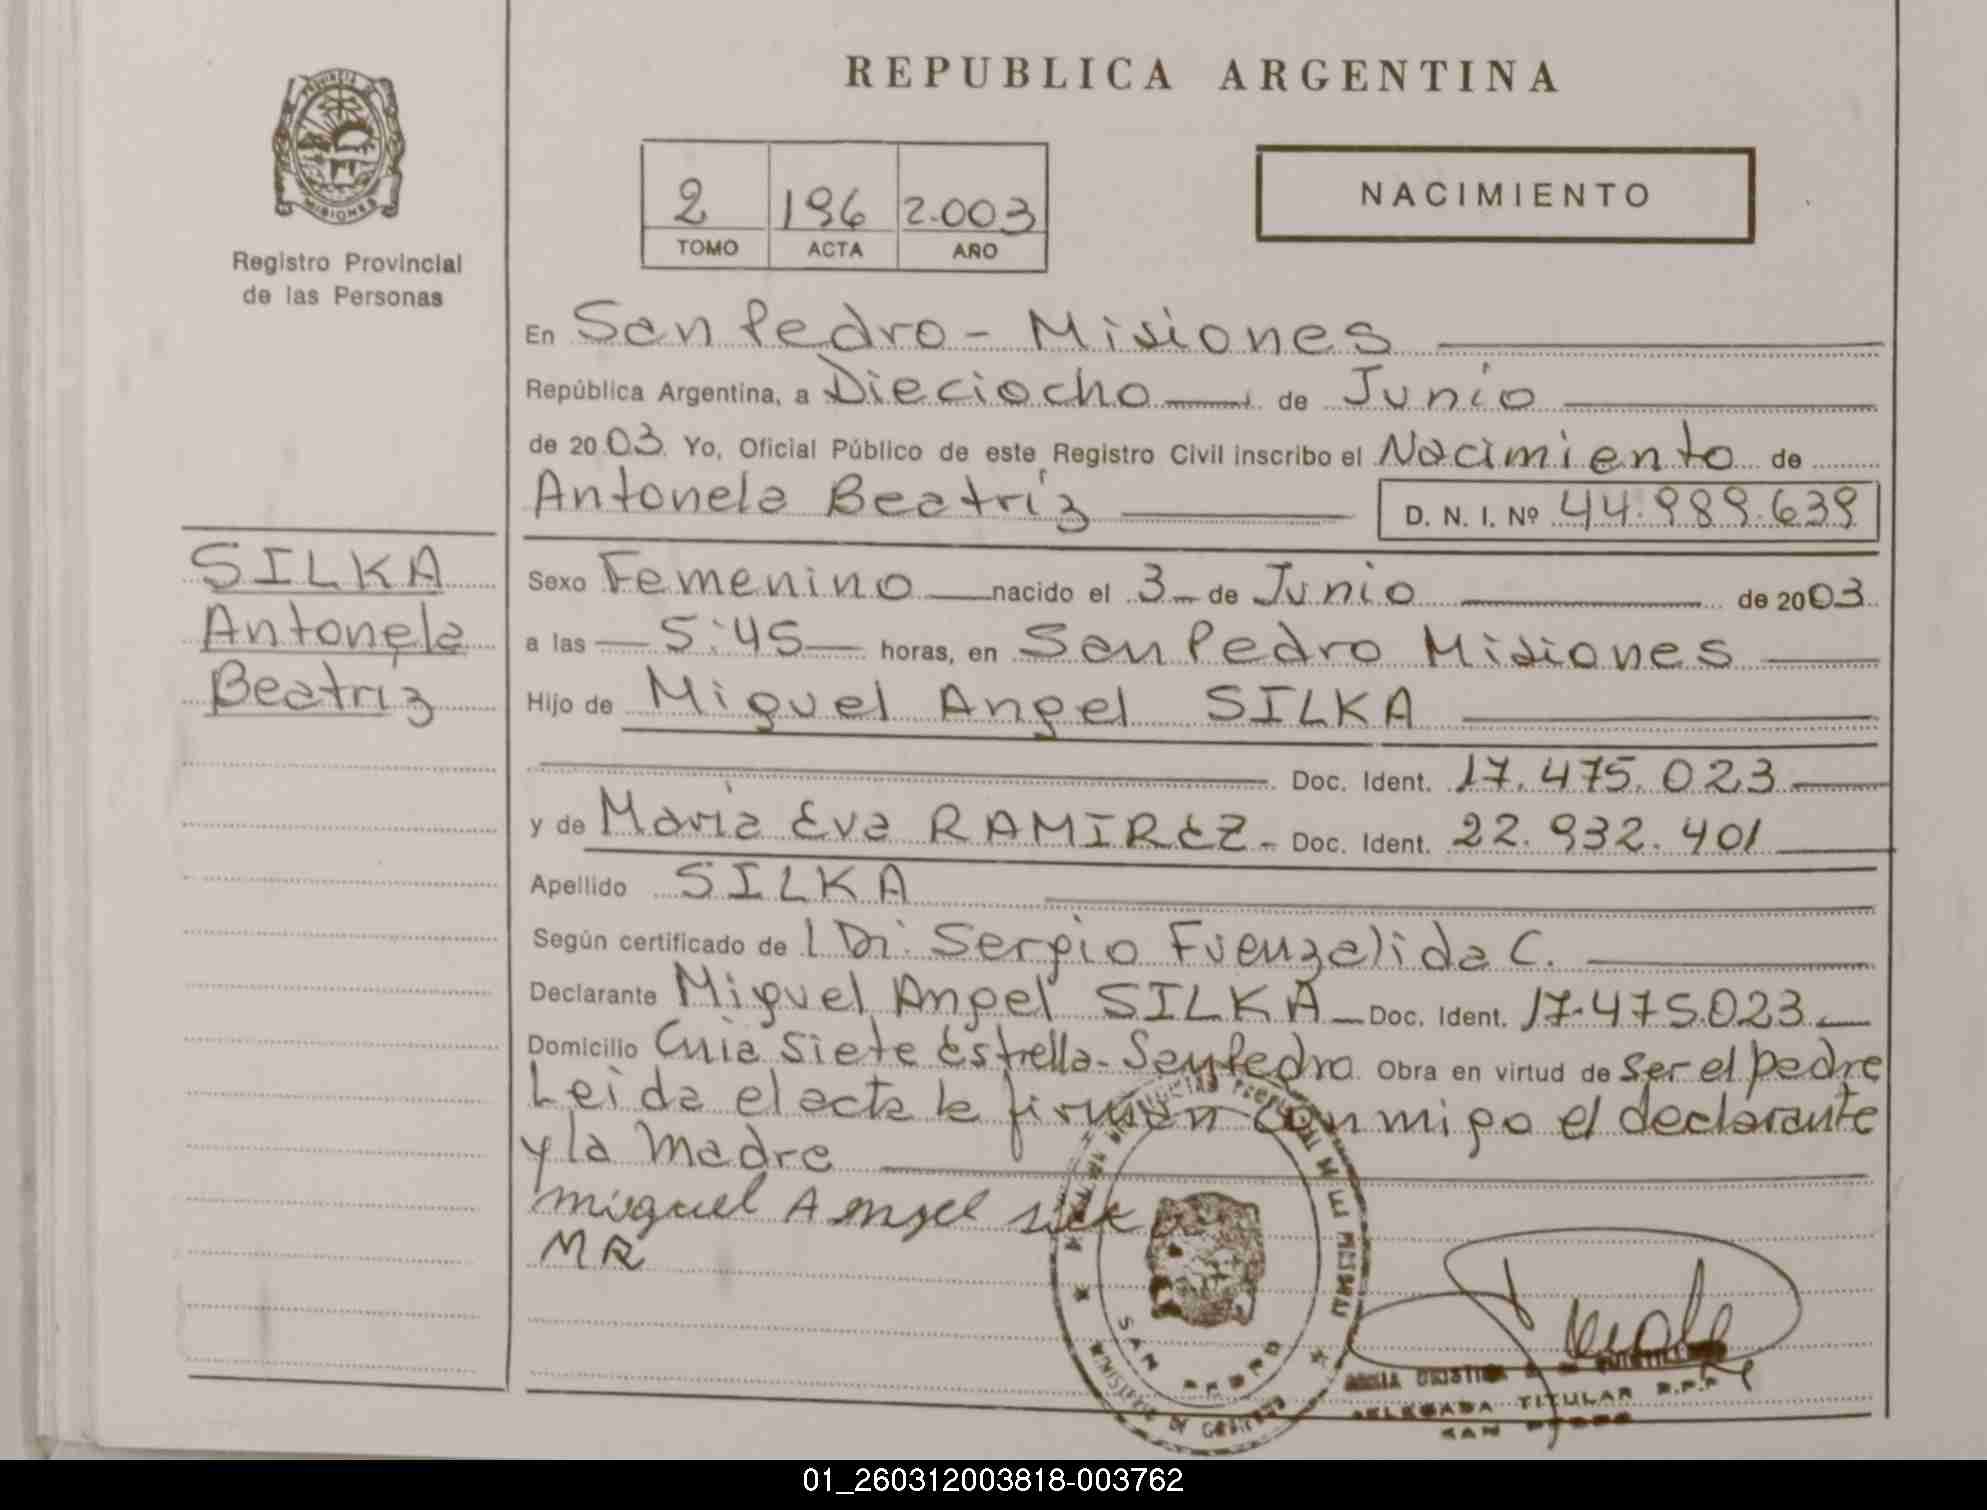 REPUBLICA ARGENTINA
PROVINCIA DE
MISIONES
Registro Provincial
de las Personas
2 196 2.003
TOMO ACTA AÑO
NACIMIENTO
En San Pedro - Misiones
República Argentina, a Dieciocho de Junio
de 2003 Yo, Oficial Público de este Registro Civil inscribo el Nacimiento de
Antonela Beatriz D. N. I. Nº 44.989.639
SILKA
Antonela
Beatriz
Sexo Femenino nacido el 3 de Junio de 2003
a las 5:45 horas, en San Pedro Misiones
Hijo de Miguel Angel SILKA
Doc. Ident. 17.475.023
y de Maria Eva RAMIREZ - Doc. Ident. 22.932.401
Apellido SILKA
Según certificado de Sergio Fuenzalida C.
Declarante Miguel Angel SILKA Doc. Ident. 17.475.023
Domicilio Siete Estrella - San Pedro Obra en virtud de ser el padre
Leida el acta la firman con migo el declarante
y la Madre
Miguel Angel silka
MR
SAN PEDRO
MINISTERIO DE GOBIERNO
DELEGADA TITULAR R.P.P
SAN PEDRO
01_260312003818-003762